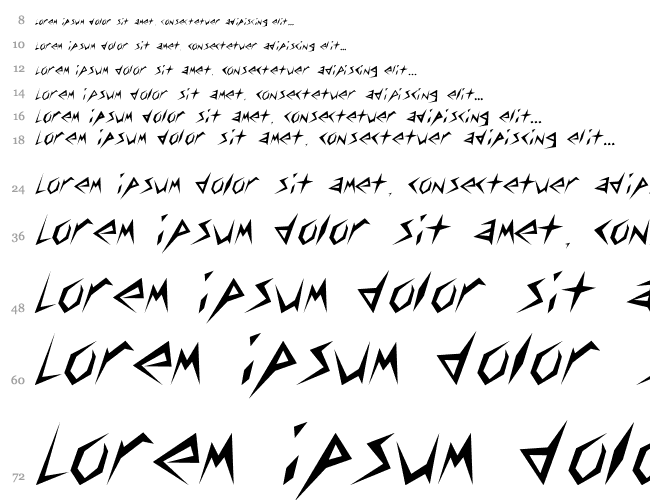 8 Lorem ipsum dolor sit amet, consectetuer adipiscing elit...
10 Lorem ipsum dolor sit amet, consectetuer adipiscing elit...
12 Lorem ipsum dolor sit amet, consectetuer adipiscing elit...
14 Lorem ipsum dolor sit amet, consectetuer adipiscing elit...
16 Lorem ipsum dolor sit amet, consectetuer adipiscing elit...
18 Lorem ipsum dolor sit amet, consectetuer adipiscing elit...
24 Lorem ipsum dolor sit amet, consectetuer adip
36 Lorem ipsum dolor sit amet, con
48 Lorem ipsum dolor sit a
60 Lorem ipsum dolor
72 Lorem ipsum dolo